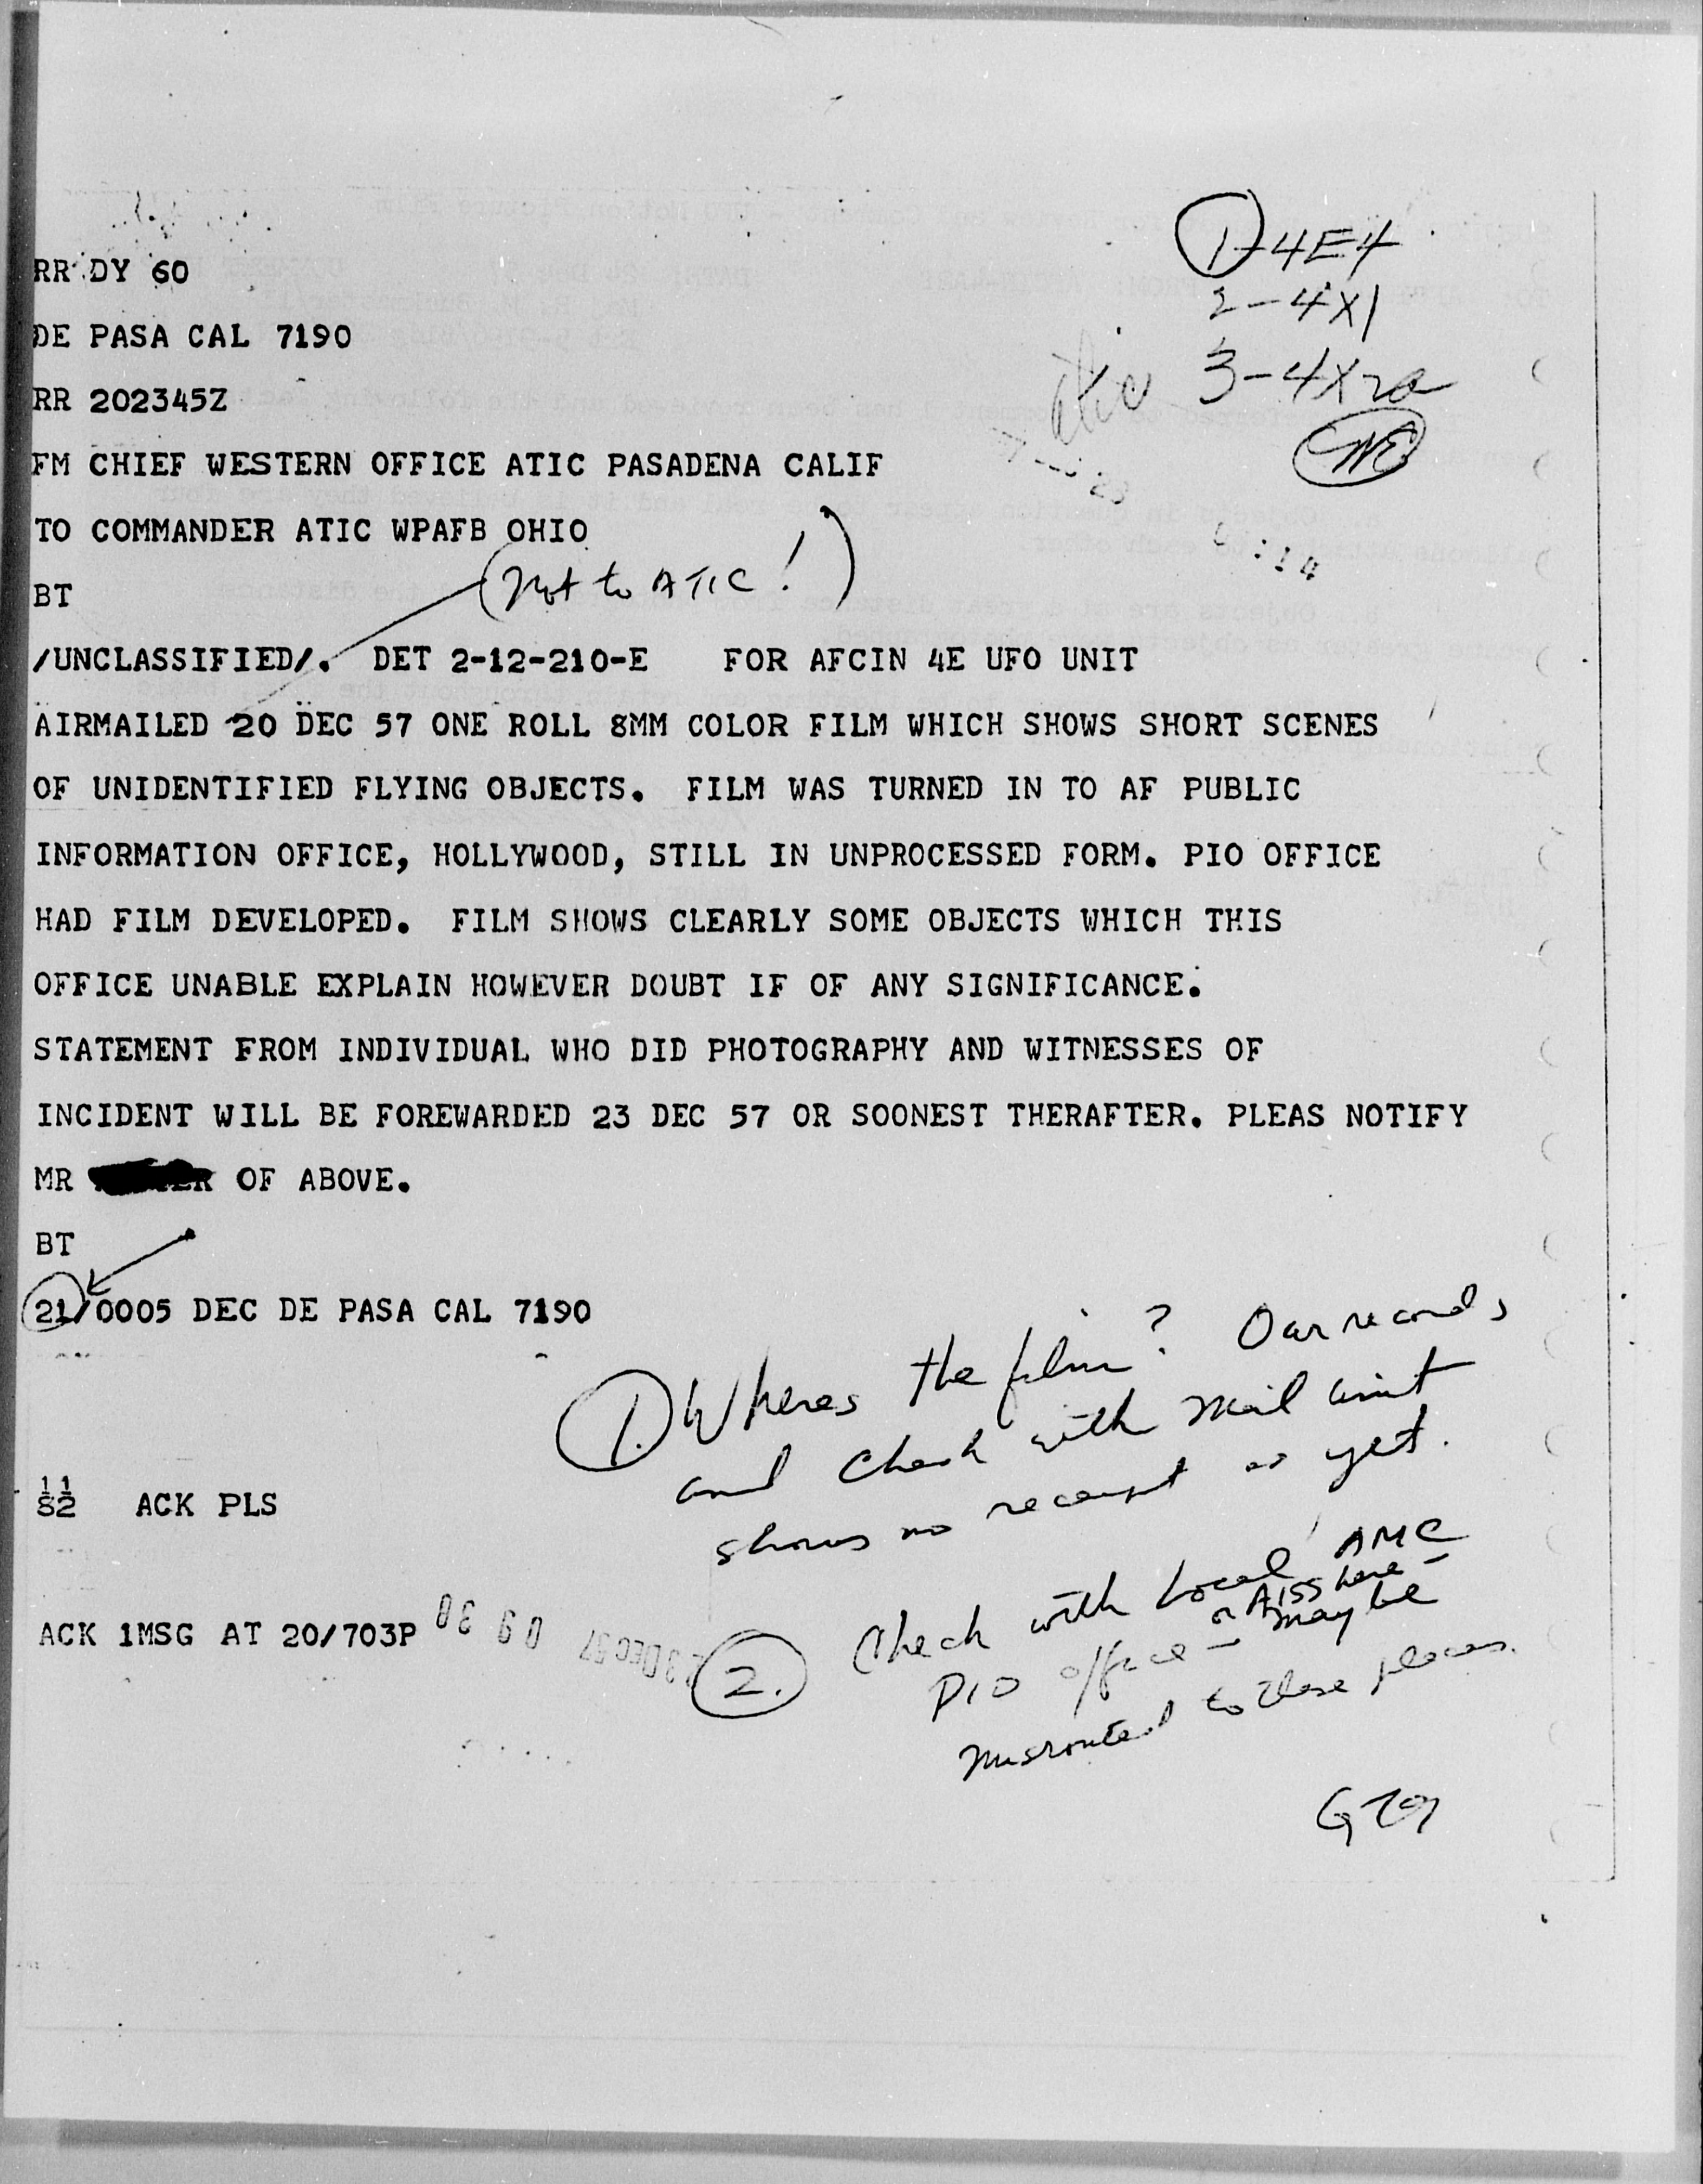 1-4E4
RR DY 60
2-4X1
DE PASA CAL 7190
3-4X2a
RR 202345Z
FM CHIEF WESTERN OFFICE ATIC PASADENA CALIF
TO COMMANDER ATIC WPAFB OHIO
(Not to ATIC!)
BT
/UNCLASSIFIED/. DET 2-12-210-E FOR AFCIN 4E UFO UNIT
AIRMAILED 20 DEC 57 ONE ROLL 8MM COLOR FILM WHICH SHOWS SHORT SCENES
OF UNIDENTIFIED FLYING OBJECTS. FILM WAS TURNED IN TO AF PUBLIC
INFORMATION OFFICE, HOLLYWOOD, STILL IN UNPROCESSED FORM. PIO OFFICE
HAD FILM DEVELOPED. FILM SHOWS CLEARLY SOME OBJECTS WHICH THIS
OFFICE UNABLE EXPLAIN HOWEVER DOUBT IF OF ANY SIGNIFICANCE.
STATEMENT FROM INDIVIDUAL WHO DID PHOTOGRAPHY AND WITNESSES OF
INCIDENT WILL BE FOREWARDED 23 DEC 57 OR SOONEST THERAFTER. PLEAS NOTIFY
MR OF ABOVE.
BT
21/0005 DEC DE PASA CAL 7190
1. Wheres the film? Our records
and check with Mail unit
shows no receipt as yet.
11
82 ACK PLS
ACK 1MSG AT 20/703P
2. Check with Local AMC
PIO office - or AISS here - maybe
misrouted to these places.